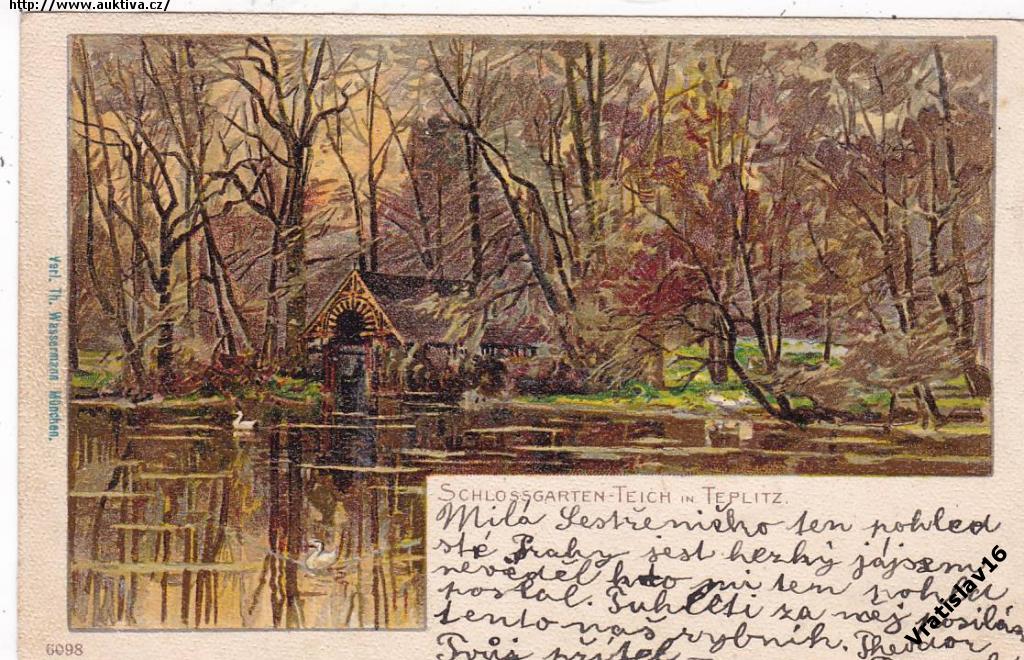 http://www.auktiva.cz/
Verl. Th. Wassermann München.
SCHLOSSGARTEN-TEICH IN TEPLITZ.
Milá Sestřeničko ten pohled
sté Prahy jest hezký já jsem
nevěděl kdo mi ten poh
poslal. Tuhleti za něj posílá
tento naš rybník. Theodor
Tvůj přítel
vratislav16
6098